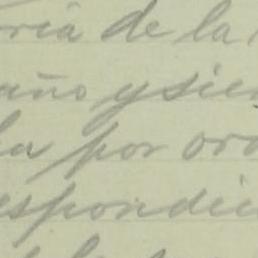 ria de la
año y sien
la por ord
espondie